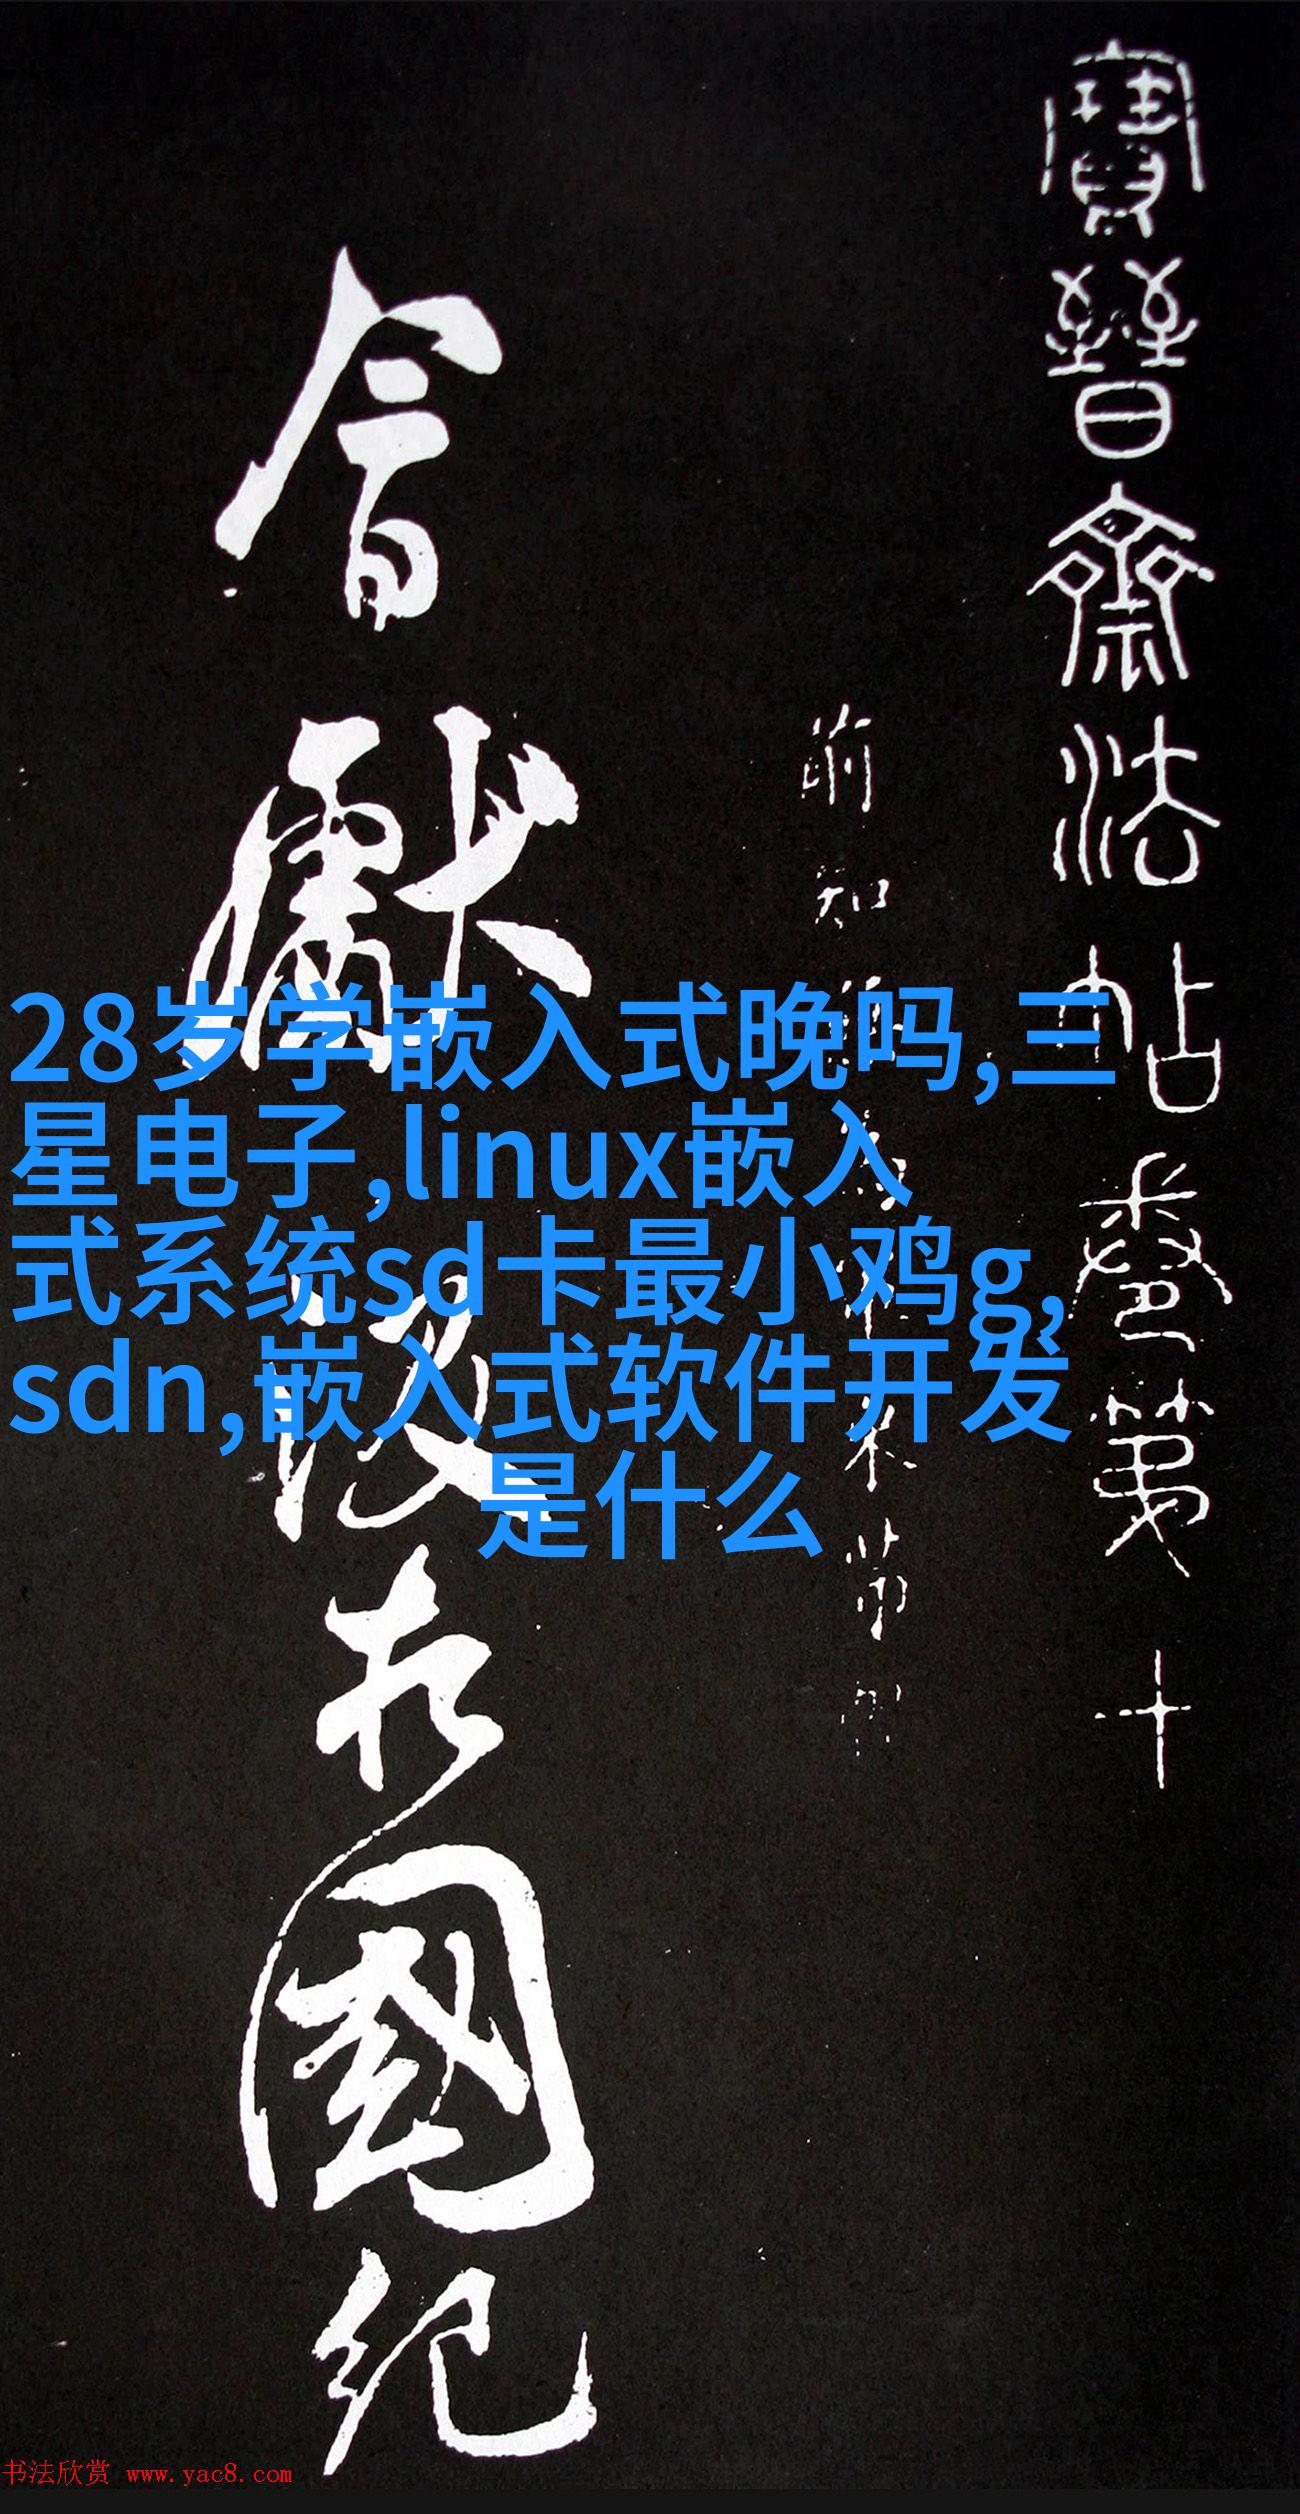 寶晉齋法帖卷第十
會獻汲古國紀
28岁学嵌入式晚吗,三
星电子,linux嵌入
式系统sd卡最小鸡g,
sdn,嵌入式软件开发
是什么
书法欣赏 www.yac8.com